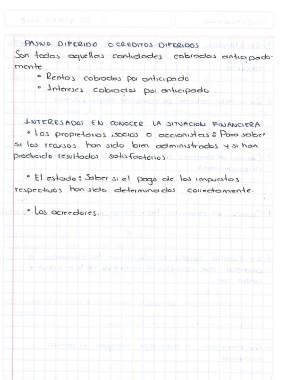 PASIVO DIFERIDO O CREDITOS DIFERIDOS
Son todas aquellas cantidades cobradas anticipada-
mente
* Rentas cobradas por anticipado
* Intereses cobrados por anticipado
INTERESADOS EN CONOCER LA SITUACION FINANCIERA
* Los propietarios, socios o accionistas: Para saber
si los recursos han sido bien administrados y si han
producido resultados satisfactorios.
* El estado: Saber si el pago de los impuestos
respectivos han sido determinados correctamente.
* Los acreedores.